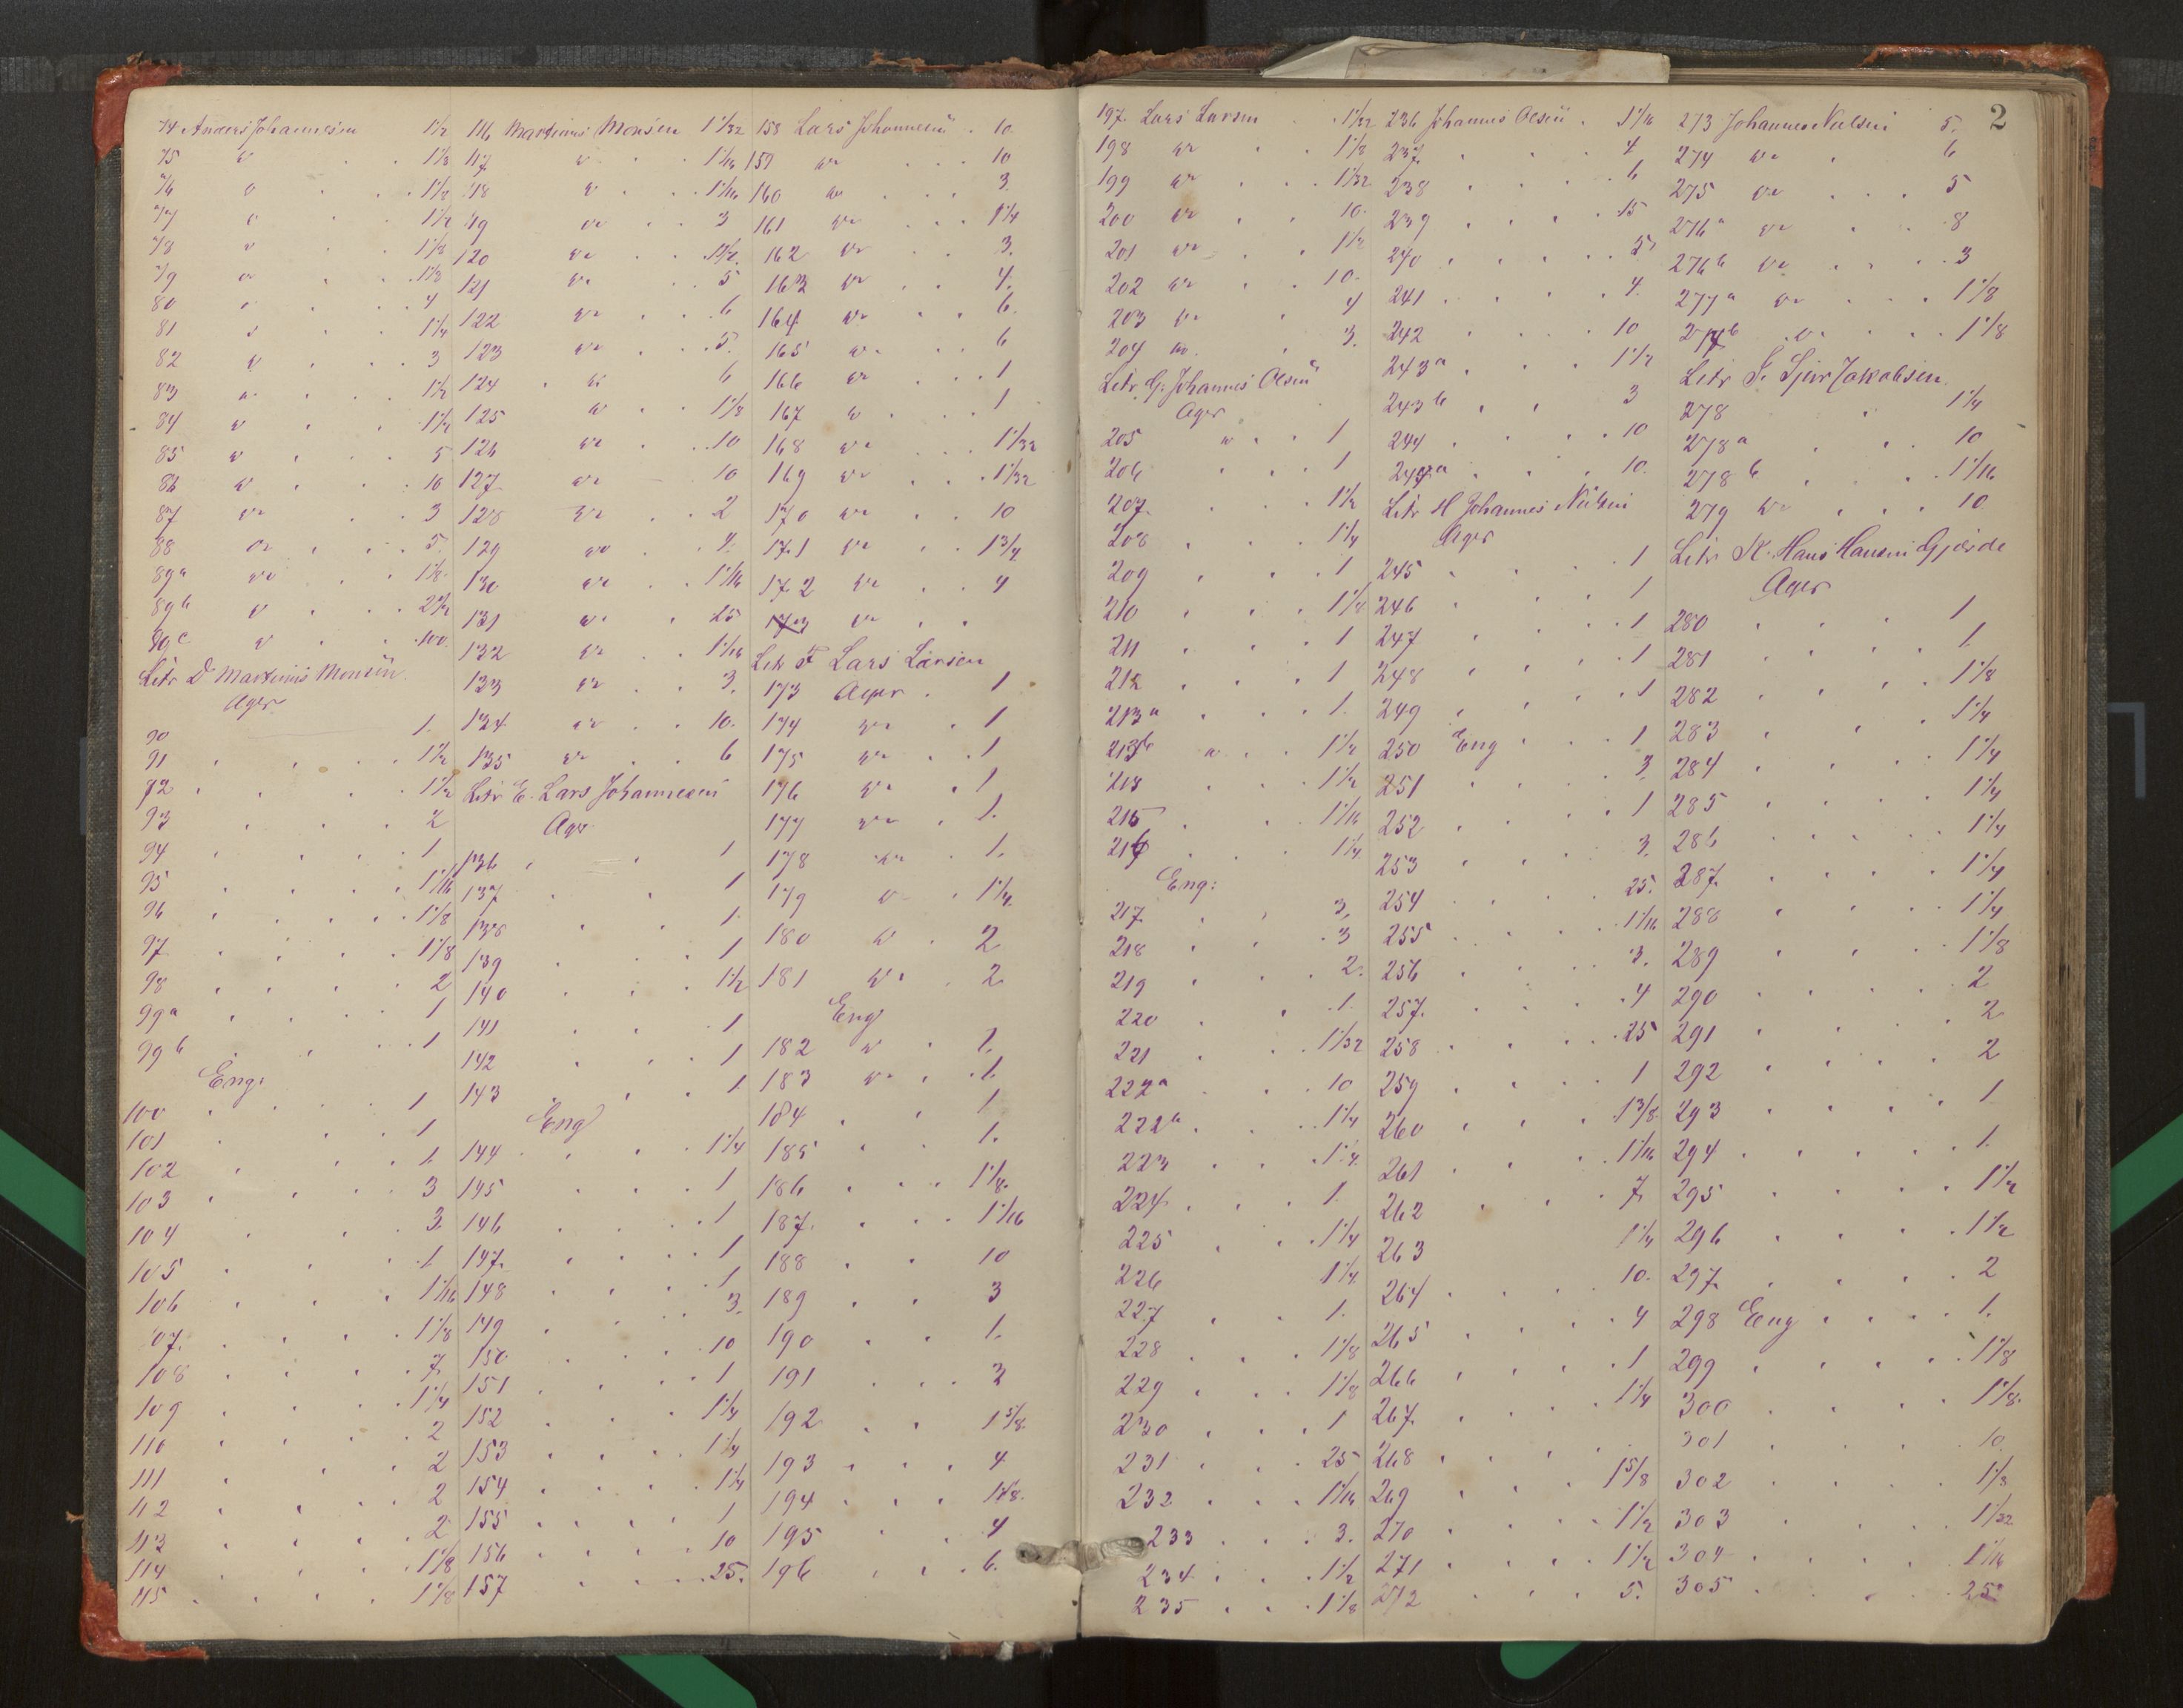 74 Anders Johannesen 1 1/2
75 " 1 1/8
76 " 1 1/8
77 " 1 1/2
78 " 1 1/8
79 " 1 1/8
80 " 4
81 " 1 1/4
82 " 3
83 " 1 1/2
84 " 1 1/2
85 " 5
86 " 10
87 " 3
88 " 5.
89a " 1 1/8
89b " 2 1/2
89c " 100.
Litr D Martinus Monsen
Ager
90 1.
91 1 1/2
92 1 1/2
93 2
94 1
95 1 1/16
96 1 1/8
97 1 1/8
98 2
99a 1
99b 1
Eng:
100 1
101 1
102 1.
103 3
104 3.
105 1
106 1 1/16
107. 1 1/8
108 7.
109 1 1/4
110 2
111 2
112 2
113 2
114 1 1/8
115 1 1/8
116 Martinus Monsen 1 1/32
117 " 1 1/16
118 " 1 1/16
119 " 3
120 " 1 1/2.
121 " 5
122 " 6
123 " 5.
124 " 6
125 " 1 1/8
126 " 10
127 " 10
128 " 2
129 " 4.
130 " 1 1/16
131 " 25
132 " 1 1/16
133 " 3.
134 " 10.
135 " 6
Litr E. Lars Johannesen
Ager
136 1
137 1
138 1.
139 1
140 1 1/2
141 1
142 1
143 1
Eng
144 1 1/4
145 1
146 1
147. 1
148 1
149 3.
150 10
151 1
152 1 1/4
153 1 1/4
154 1 1/4
155 1
156 10
157 25.
158 Lars Johannesen 10.
159 " 10
160 " 3.
161 " 1 1/4
162 " 3.
163 " 4.
164 " 6.
165 " 6
166 " 1
167 " 1
168 " 1 1/32
169 " 1 1/32
170 " 10
171 " 1 3/4
172 " 4
173 "
Litr F Lars Larsen
173 Ager 1
174 " 1
175 " 1
176 " 1
177 " 1.
178 " 1.
179 " 1 1/4.
180 " 2
181 " 2
Eng
182 " 1.
183 " 1.
184 1
185 1.
186 1 1/8.
187. 1 1/16
188 10
189 3
190 1.
191 3
192 1 5/8.
193 4
194 1 1/8.
195 4
196 6.
2
197. Lars Larsen 1 1/32
198 " 1 1/8
199 " 1 1/32
200 " 10.
201 " 1 1/2
202 " 10.
203 " 4
204 " 3.
Litr. G: Johannes Olsen
Ager
205 " 1
206 1
207. 1 1/2
208 1 1/4
209 1
210 1 1/8
211 1
212 1
213a 1.
213b " 1 1/2
214 1 1/2
215 1 1/16
216 1 1/4.
Eng:
217. 3,
218 3
219 2.
220 1.
221 1 1/32
222a 10
222b 1 1/4
223 1 1/4.
224. 1.
225 1 1/4
226 1 1/4.
227 1.
228 1 1/8
229 1 1/8
230 1
231 25
232 1 1/16
233 3.
234 1 1/2
235 1 1/8
236 Johannes Olsen 1 1/16
237. 4
238 6
239 15
240 5
241 4.
242 10
243a 1 1/2
243b 3
244 10
244a 10.
Litr H Johannes Nielsen
Ager
245 1
246 1
247 1
248 1
249 1
250 Eng 1
251 3.
252 1
253 3.
254 25.
255 1 1/16
256 3.
257. 4
258 25
259 1
260 1 3/8.
261 1 1/16
262 7
263 1 1/4
264 10.
265 4
266 1
267. 1 1/4
268
269 1 5/8
270 1 1/2
271 1 1/2
272 5.
273 Johannes Nielsen 5.
274 " 6
275 " 5
276a " 8
276b " 3
277a " 1 1/8
277b " 1 1/8
Litr I. Sjur Jakobsen
278 1 1/4
278a 10
278b 1 1/16
279 " 10
Litr K. Hans Hansen Gjærde
Ager
280 1
281 1.
282 1 1/8
283 1 1/4
284 1 1/4
285 1 1/4
286 1 1/4
287. 1 1/4
288 1 1/4
289 1 1/8
290 2
291 2
292 2
293 1
294 1.
295 1 1/2
296 1 1/2
297. 2
298 Eng 1.
299 1 1/8
300 1 1/8.
301 10.
302 1 1/8
303 1 1/32
304 1 1/16
305 25